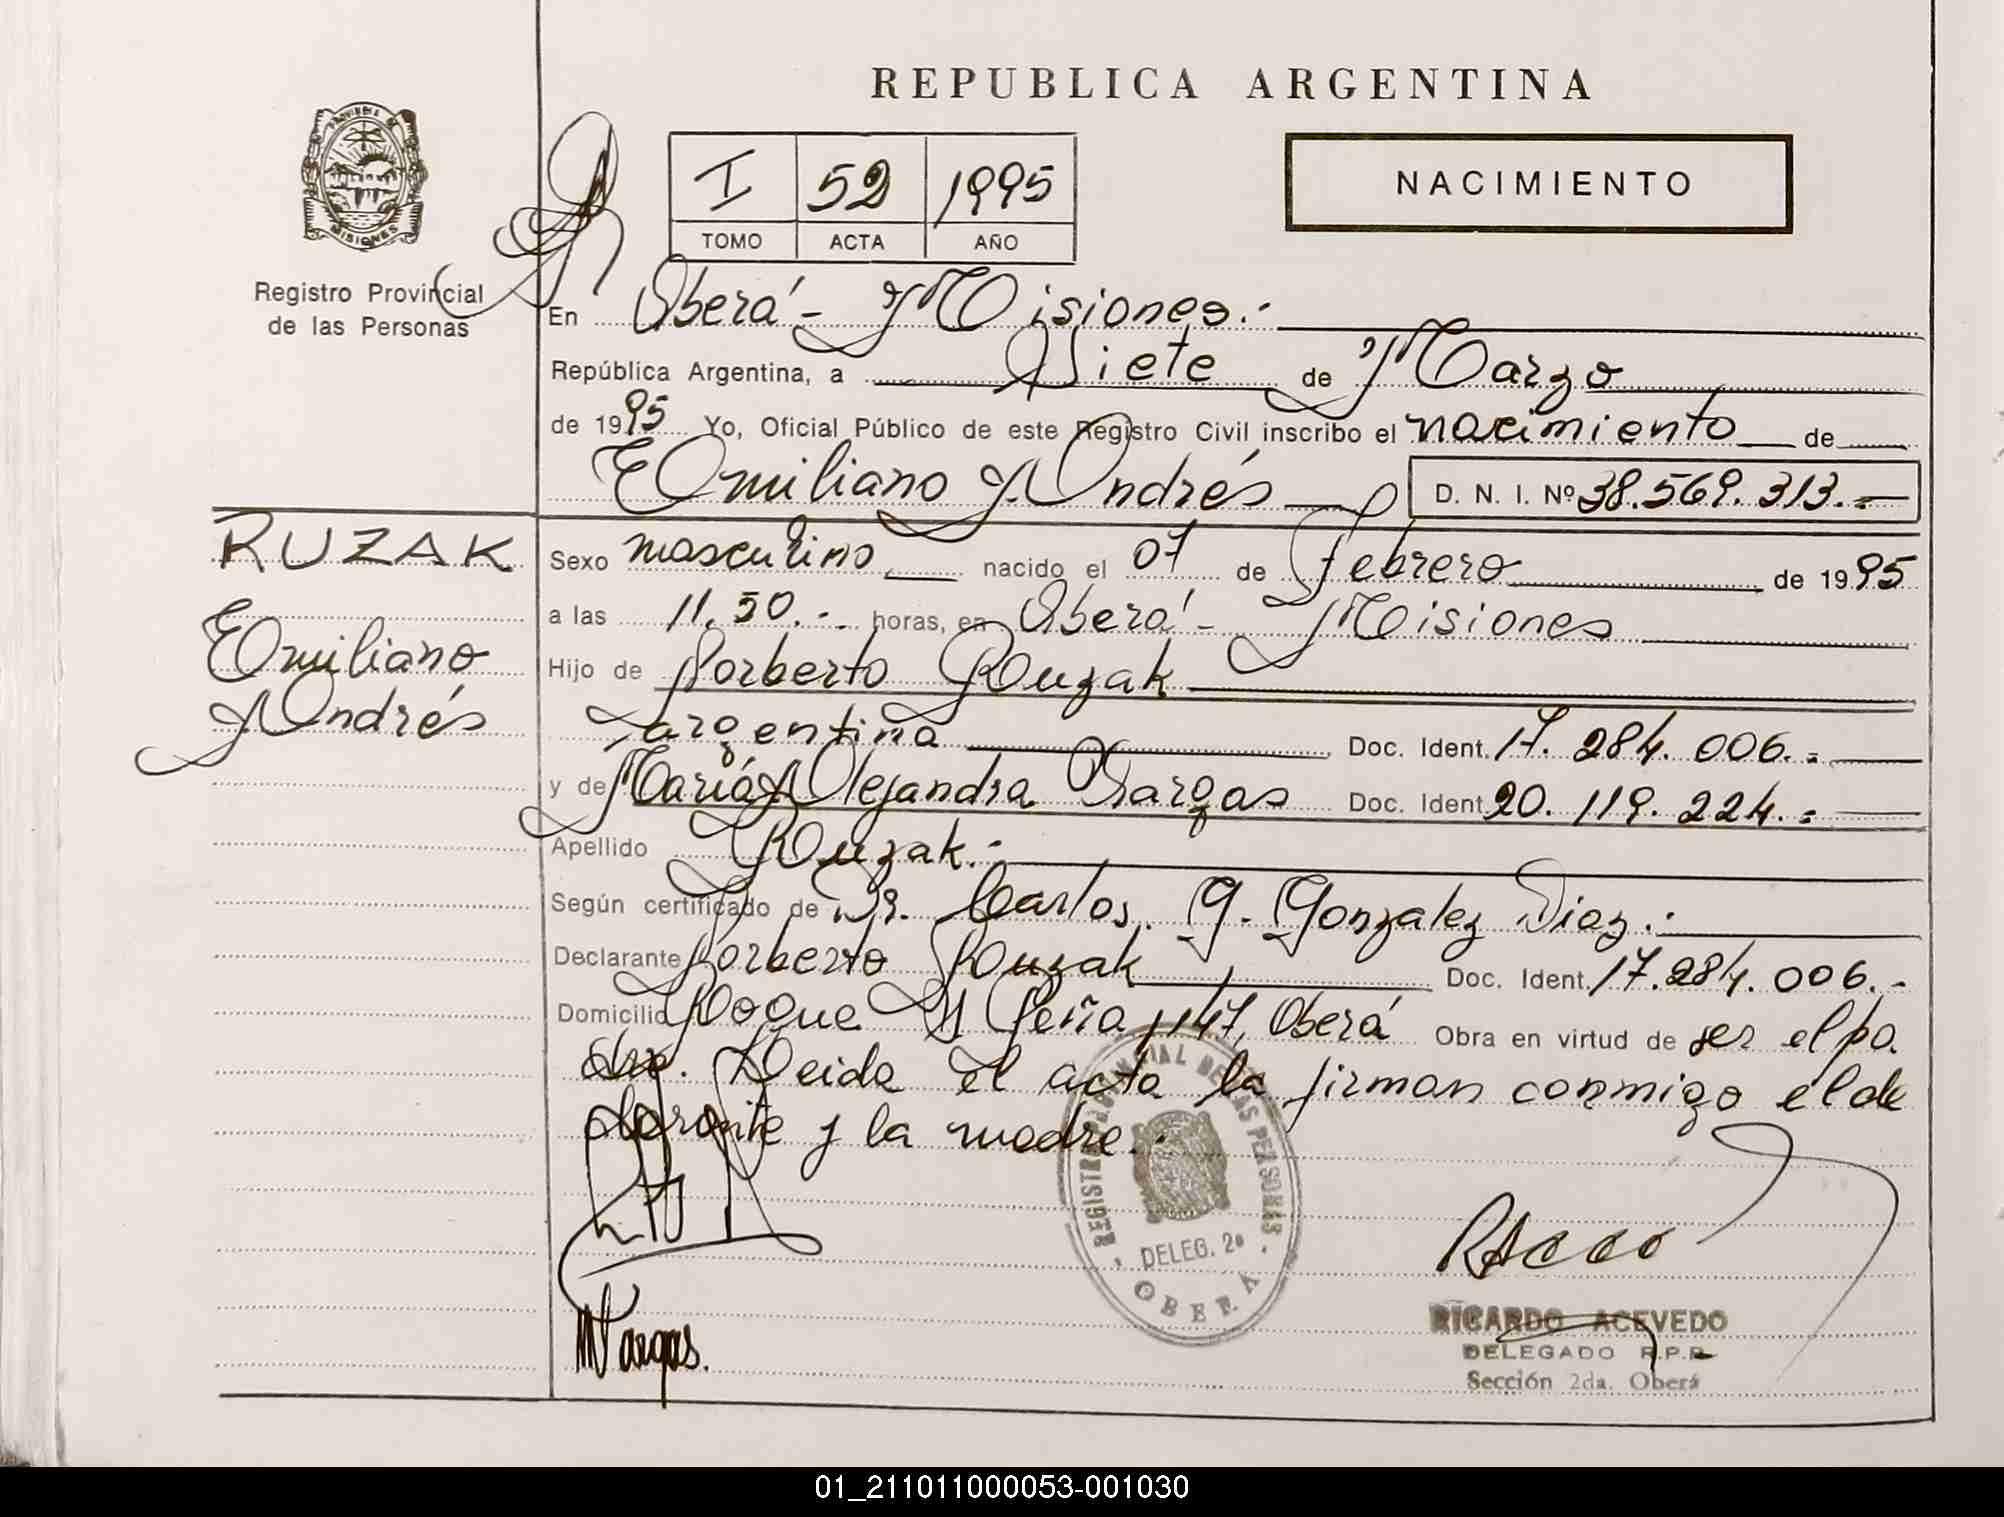 REPUBLICA ARGENTINA
PROVINCIA DE
MISIONES
Registro Provincial
de las Personas
I 52 1995
TOMO ACTA AÑO
NACIMIENTO
En Oberá - Misiones.-
República Argentina, a Siete de Marzo
de 1995 Yo, Oficial Público de este Registro Civil inscribo el nacimiento de
Emiliano Andrés D. N. I. Nº 38.569.313.=
RUZAK
Emiliano
Andrés
Sexo masculino nacido el 07 de Febrero de 1995
a las 11.50.- horas, en Oberá - Misiones
Hijo de Norberto Ruzak
argentina Doc. Ident. 17.284.006.=
y de María Alejandra Vargas Doc. Ident. 20.119.224.=
Apellido Ruzak.-
Según certificado de Dr. Carlos G. Gonzalez Diaz.-
Declarante Norberto Ruzak Doc. Ident. 17.284.006.-
Domicilio Roque S Peña 1147, Oberá Obra en virtud de ser el pa
dre. Leida el acta la firman conmigo el de
clarante y la madre.-
REGISTRO PROVINCIAL DE LAS PERSONAS
DELEG. 2a
OBERA
MVargas.
RICARDO ACEVEDO
DELEGADO R.P.P.
Sección 2da. Oberá
01_211011000053-001030